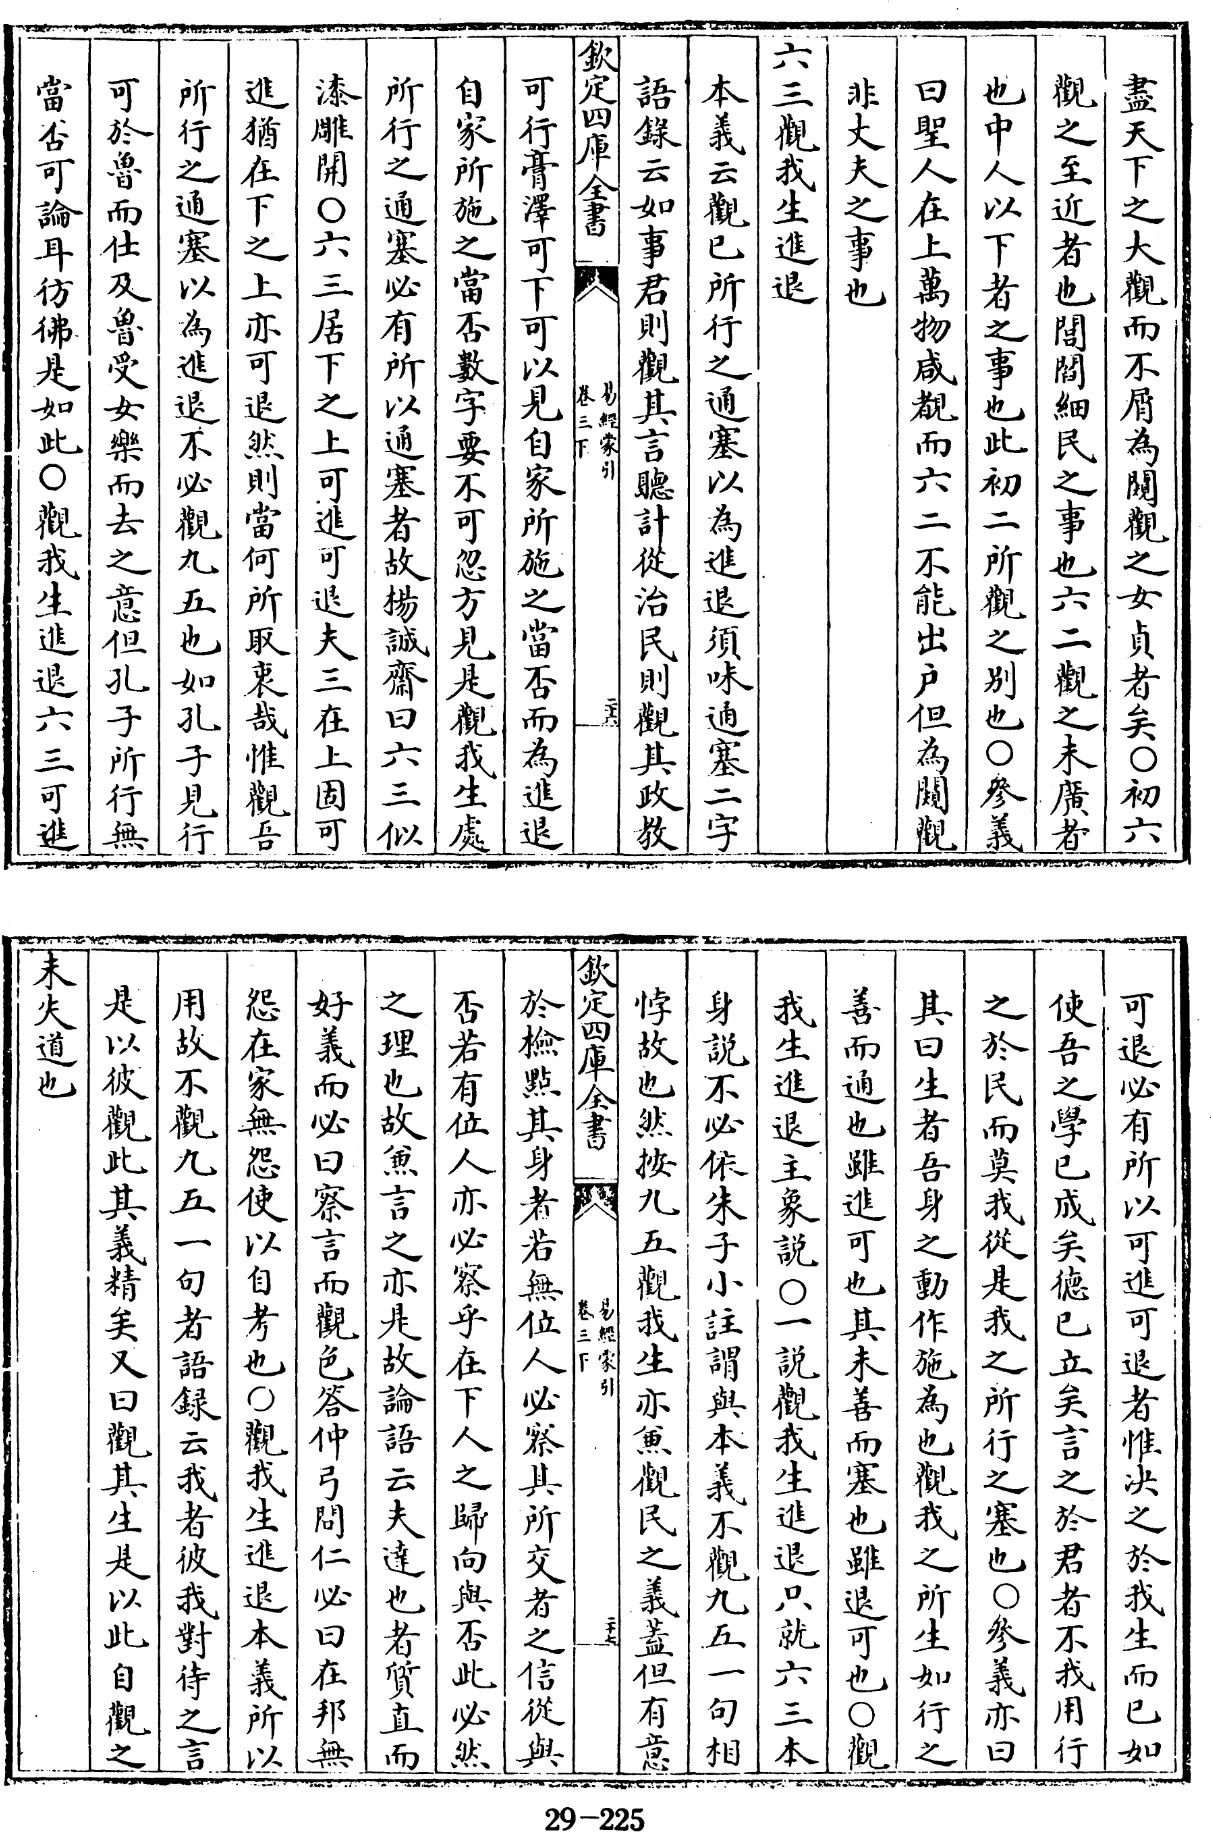 盡天下之大觀而不屑為闚觀之女貞者矣○初六
觀之至近者也閭閻細民之事也六二觀之未廣者
也中人以下者之事也此初二所觀之別也○參義
曰聖人在上萬物咸覩而六二不能出户但為闚觀
非丈夫之事也
六三觀我生進退
本義云觀已所行之通塞以為進退須味通塞二字
語錄云如事君則觀其言聽計從治民則觀其政教
欽定四庫全書
易經蒙引
卷三下
二十六
可行膏澤可下可以見自家所施之當否而為進退
自家所施之當否數字要不可忽方見是觀我生處
所行之通塞必有所以通塞者故揚誠齋曰六三似
漆雕開○六三居下之上可進可退夫三在上固可
進猶在下之上亦可退然則當何所取衷哉惟觀吾
所行之通塞以為進退不必觀九五也如孔子見行
可於魯而仕及魯受女樂而去之意但孔子所行無
當否可論耳彷彿是如此○觀我生進退六三可進
可退必有所以可進可退者惟决之於我生而已如
使吾之學已成矣德已立矣言之於君者不我用行
之於民而莫我從是我之所行之塞也○參義亦曰
其曰生者吾身之動作施為也觀我之所生如行之
善而通也雖進可也其未善而塞也雖退可也○觀
我生進退主象説○一説觀我生進退只就六三本
身説不必依朱子小註謂與本義不觀九五一句相
悖故也然按九五觀我生亦兼觀民之義蓋但有意
欽定四庫全書
易經蒙引
卷三下
二十七
於檢點其身者若無位人必察其所交者之信從與
否若有位人亦必察乎在下人之歸向與否此必然
之理也故兼言之亦是故論語云夫達也者質直而
好義而必曰察言而觀色答仲弓問仁必曰在邦無
怨在家無怨使以自考也○觀我生進退本義所以
用故不觀九五一句者語録云我者彼我對待之言
是以彼觀此其義精矣又曰觀其生是以此自觀之
未失道也
29-225